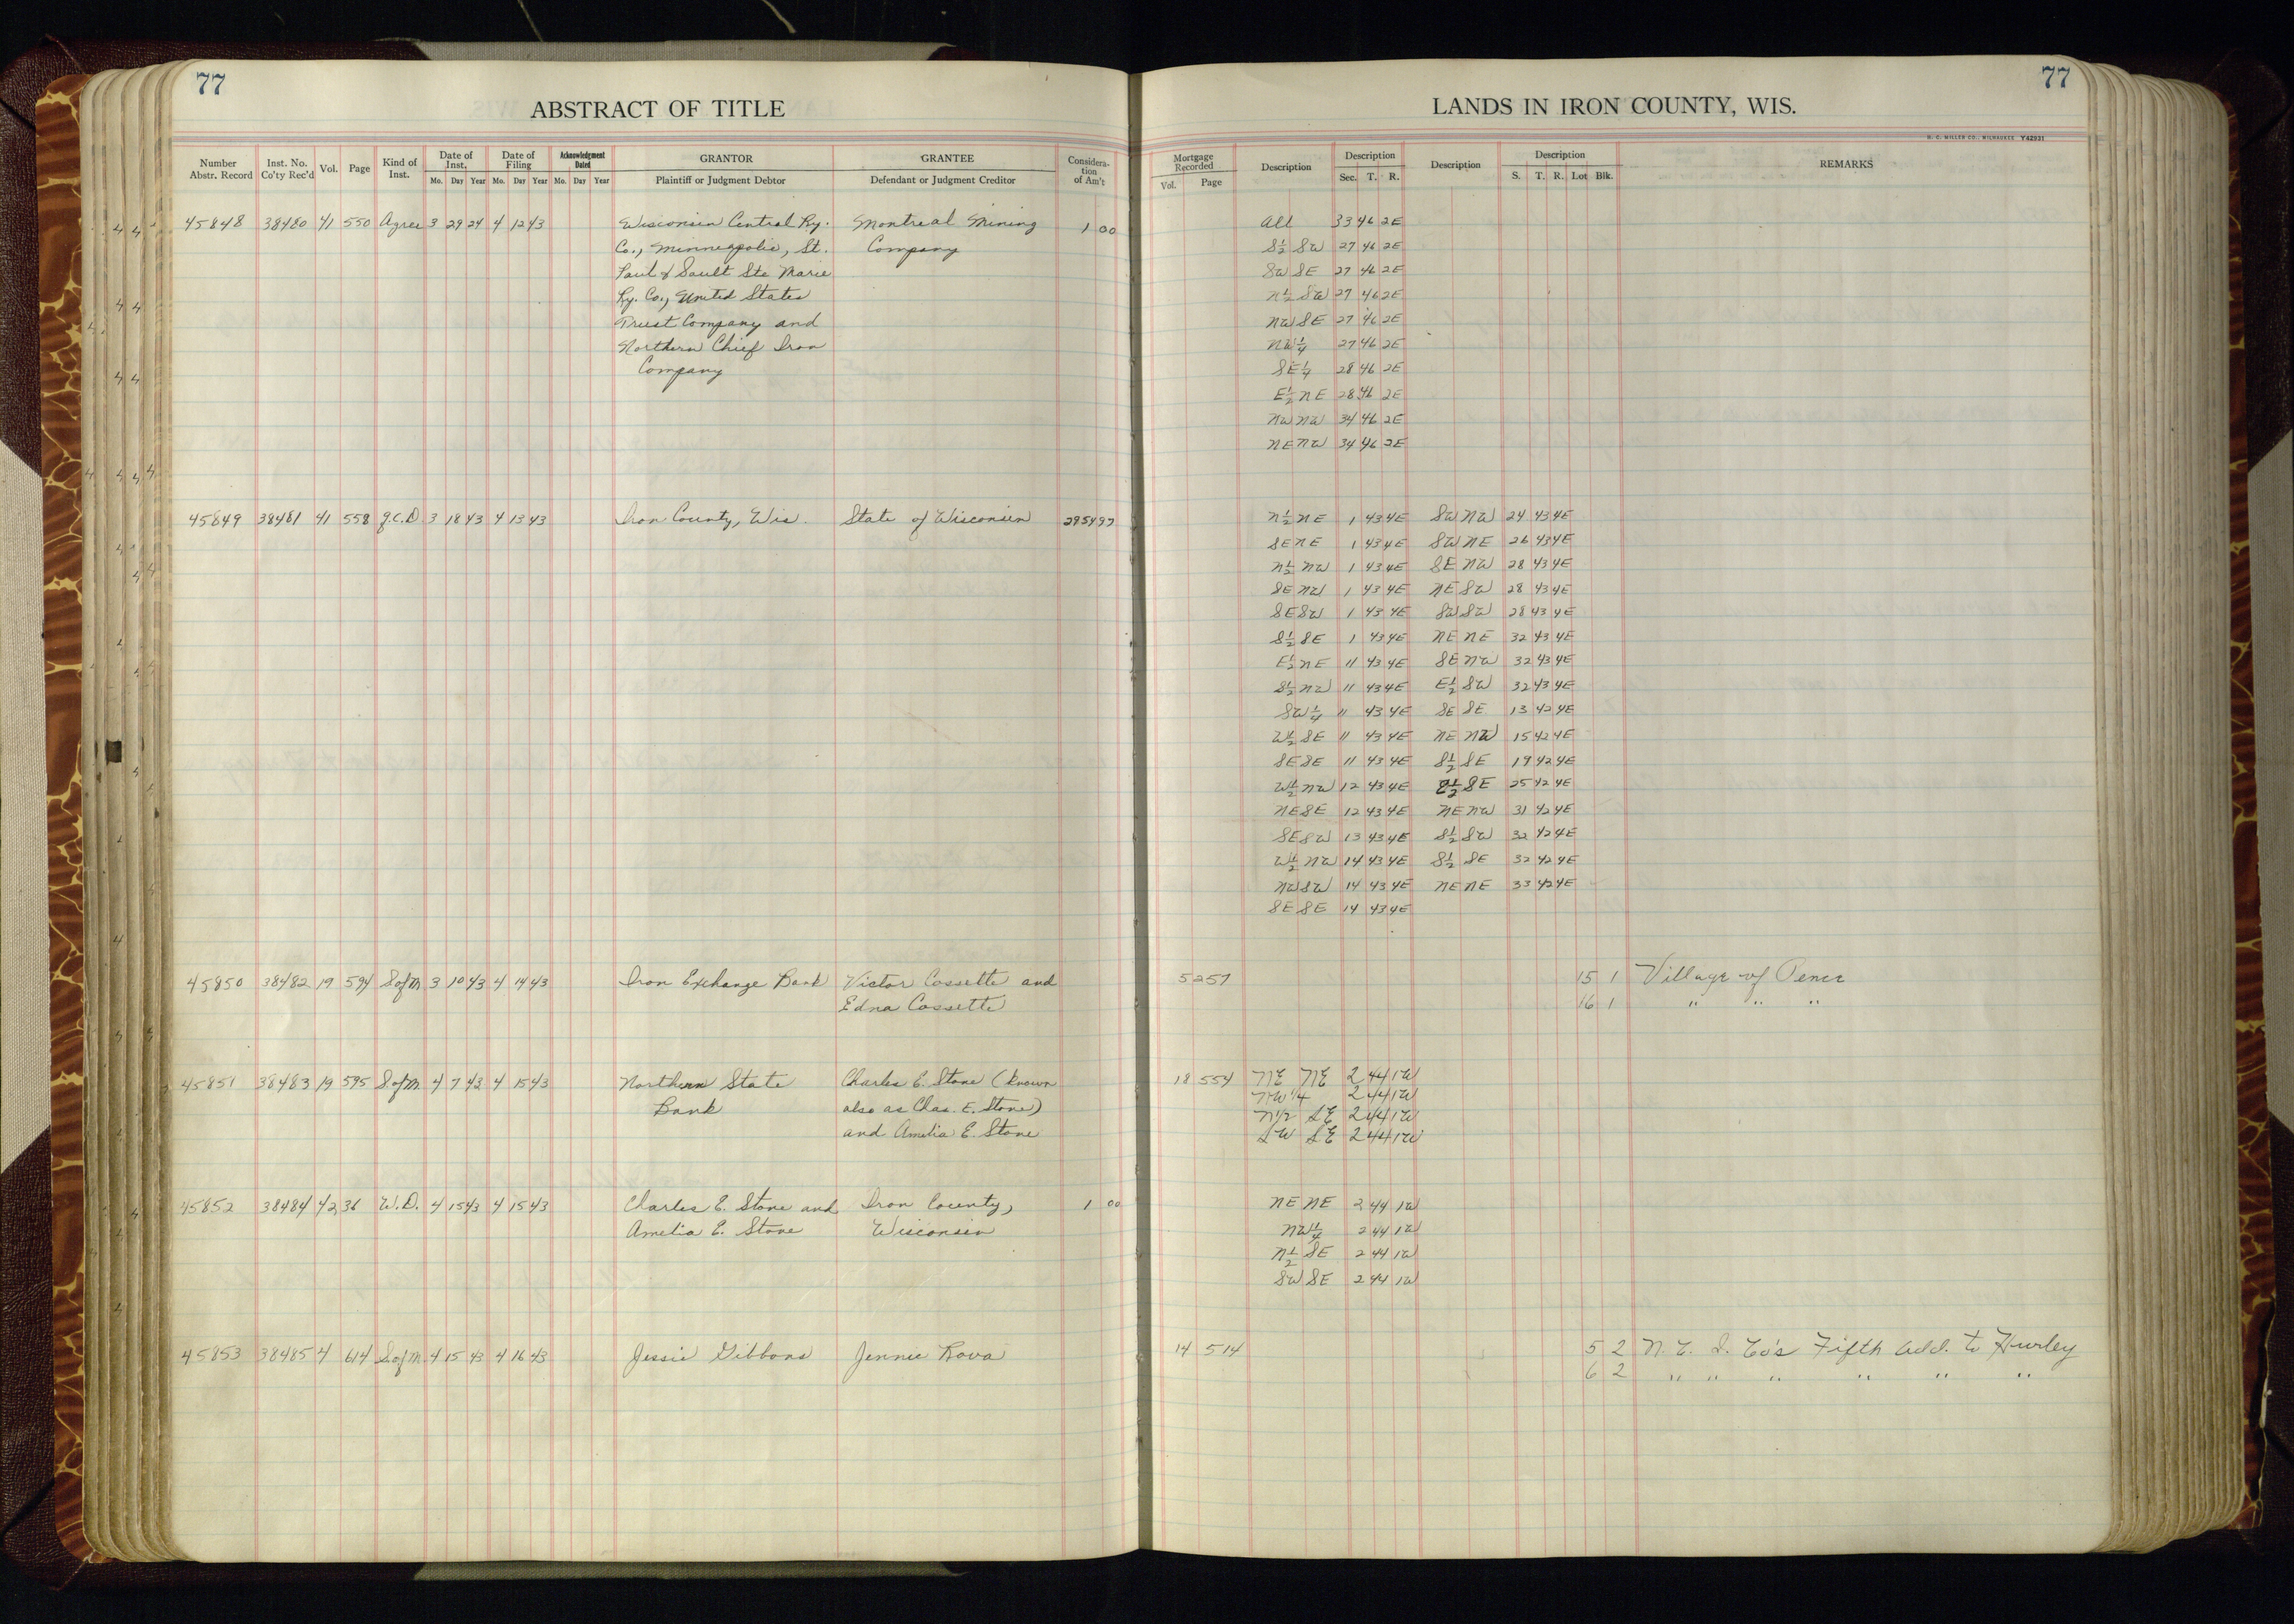 77
ABSTRACT OF TITLE
Number Abstr. Record | Inst. No. Co'ty Rec'd | Vol. | Page | Kind of Inst. | Date of Inst. Mo. Day Year | Date of Filing Mo. Day Year | Acknowledgment Dated Mo. Day Year | GRANTOR Plaintiff or Judgment Debtor | GRANTEE Defendant or Judgment Creditor | Considera-tion of Am't
45848 38480 41 550 Agree 3 29 24 4 12 43 Wisconsin Central Ry. Montreal Mining 1 00
Co., Minneapolis, St. Company
Paul & Sault Ste Marie
Ry. Co., United States
Trust Company and
Northern Chief Iron
Company
45849 38481 41 558 q.c.D. 3 18 43 4 13 43 Iron County, Wis. State of Wisconsin 2954 97
45850 38482 19 594 S of M 3 10 43 4 14 43 Iron Exchange Bank Victor Cossette and
Edna Cossette
45851 38483 19 595 S. of M. 4 7 43 4 15 43 Northern State Charles E. Stone (known
Bank also as Chas. E. Stone)
and Amelia E. Stone
45852 38484 42 36 W.D. 4 15 43 4 15 43 Charles E. Stone and Iron County, 1 00
Amelia E. Stone Wisconsin
45853 38485 4 614 S. of M. 4 15 43 4 16 43 Jessie Gibbons Jennie Rova
77
LANDS IN IRON COUNTY, WIS.
H. C. MILLER CO., MILWAUKEE Y42931
Mortgage Recorded Vol. Page | Description | Description Sec. T. R. | Description | Description S. T. R. Lot Blk. | REMARKS
All 33 46 2E
S½ SW 27 46 2E
SW SE 27 46 2E
N½ SW 27 46 2E
NW SE 27 46 2E
NW¼ 27 46 2E
SE¼ 28 46 2E
E½ NE 28 46 2E
NW NW 34 46 2E
NE NW 34 46 2E
N½ NE 1 43 4E SW NW 24 43 4E
SE NE 1 43 4E SW NE 26 43 4E
N½ NW 1 43 4E SE NW 28 43 4E
SE NW 1 43 4E NE SW 28 43 4E
SE SW 1 43 4E SW SW 28 43 4E
S½ SE 1 43 4E NE NE 32 43 4E
E½ NE 11 43 4E SE NW 32 43 4E
S½ NW 11 43 4E E½ SW 32 43 4E
SW¼ 11 43 4E SE SE 13 42 4E
W½ SE 11 43 4E NE NW 15 42 4E
SE SE 11 43 4E S½ SE 19 42 4E
W½ NW 12 43 4E E½ SE 25 42 4E
NE SE 12 43 4E NE NW 31 42 4E
SE SW 13 43 4E S½ SW 32 42 4E
W½ NW 14 43 4E S½ SE 32 42 4E
NW SW 14 43 4E NE NE 33 42 4E
SE SE 14 43 4E
5 257 15 1 Village of Pence
16 1 " " "
18 554 NE NE 2 44 1W
NW 1/4 2 44 1W
N1/2 SE 2 44 1W
SW SE 2 44 1W
NE NE 2 44 1W
NW¼ 2 44 1W
N½ SE 2 44 1W
SW SE 2 44 1W
14 514 5 2 N. L. I. Co's Fifth Add. to Hurley
6 2 " " " " " "